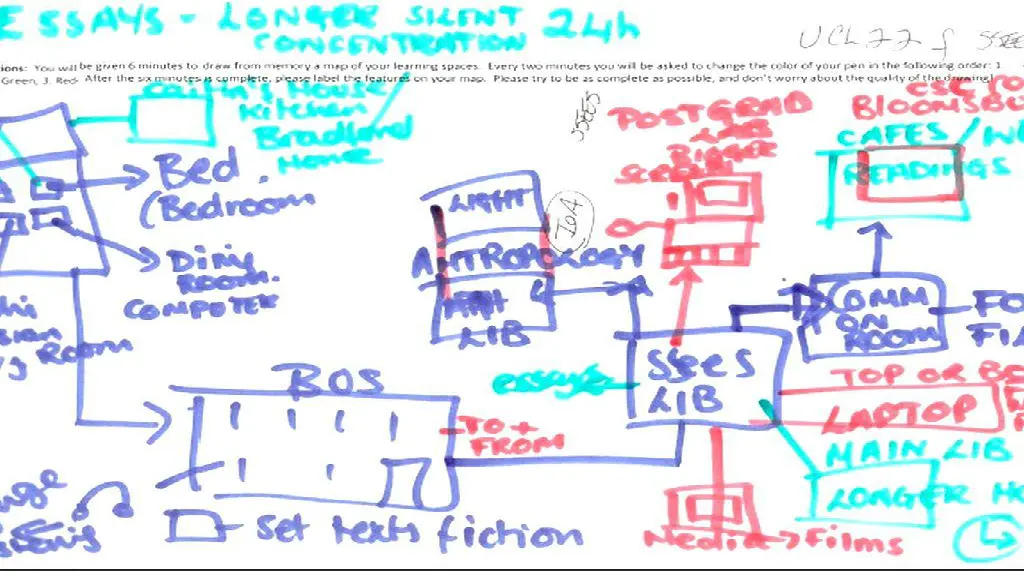 ESSAYS - LONGER SILENT 24h
CONCENTRATION
UCL22f SSEES
ions: You will be given 6 minutes to draw from memory a map of your learning spaces. Every two minutes you will be asked to change the color of your pen in the following order: 1.
Green, 3. Red. After the six minutes is complete, please label the features on your map. Please try to be as complete as possible, and don't worry about the quality of the drawing!
Caitlin's House
Kitchen
Bradford
Home
SSEES
POSTGRAD
LAB
BIGGER
SCREEN
BLOOMSBU
CAFES
READINGS
Bed.
(Bedroom
LIGHT
IoA
ANTROPOLOGY
LIB
Diny
Room.
COMPUTER
Room
COMM
ON
ROOM
FO
FIL
SSEES
LIB
essays
BOS
TO +
FROM
TOP OR BE
LAPTOP
MAIN LIB
LONGER HO
Set texts fiction
Media → Films